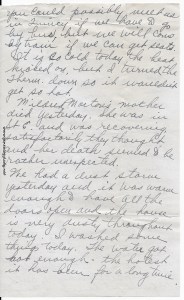 you could possibly meet us
in Quincy if we have to go
by bus, but we will come
by train if we can get seats.
It is so cold today the heat
kicked on, but I turned the
Therm. down so it wouldn't
get so hot.
Mildred Morton's mother
died yesterday, she was in
her 6, and was recovering
satisfactorily they thought
and her death seemed to be
rather unexpected.
We had a dust storm
yesterday and it was warm
enough to have all the
doors open and the house
is very dusty throughout
today. I washed some
things today. The water got
hot enough - the hottest
it has been for a long time